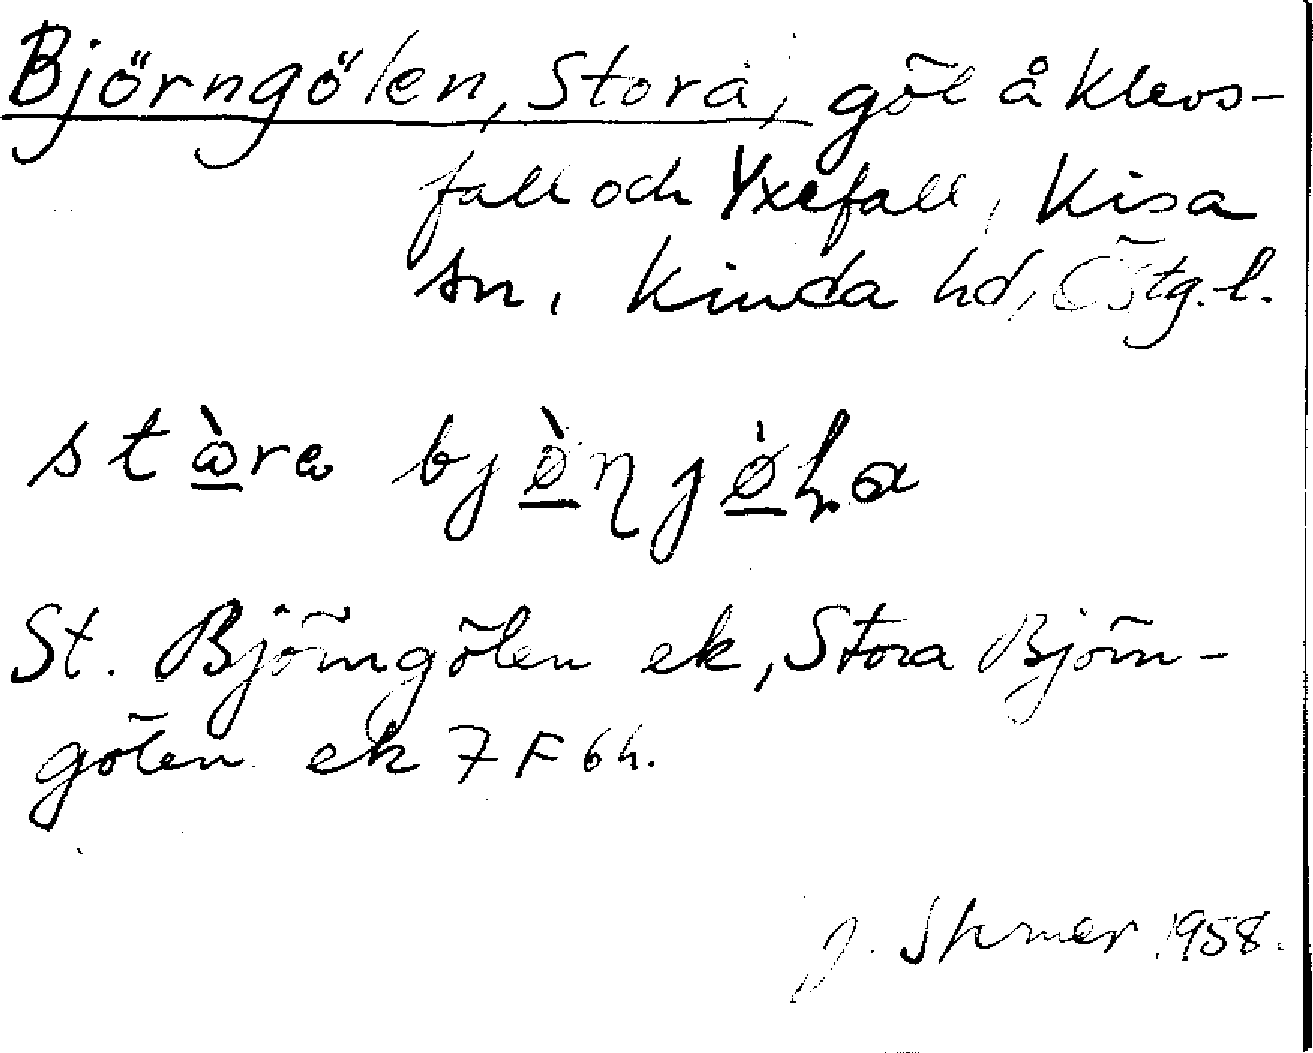 Björngölen, Stora, göl å Klevs-
fall och Yxefall, Kisa
sn, Kinda hd, Östg. l.
St. Björngölen ek, Stora Björn-
gölen ek 7 F 6h.
J. 1958.